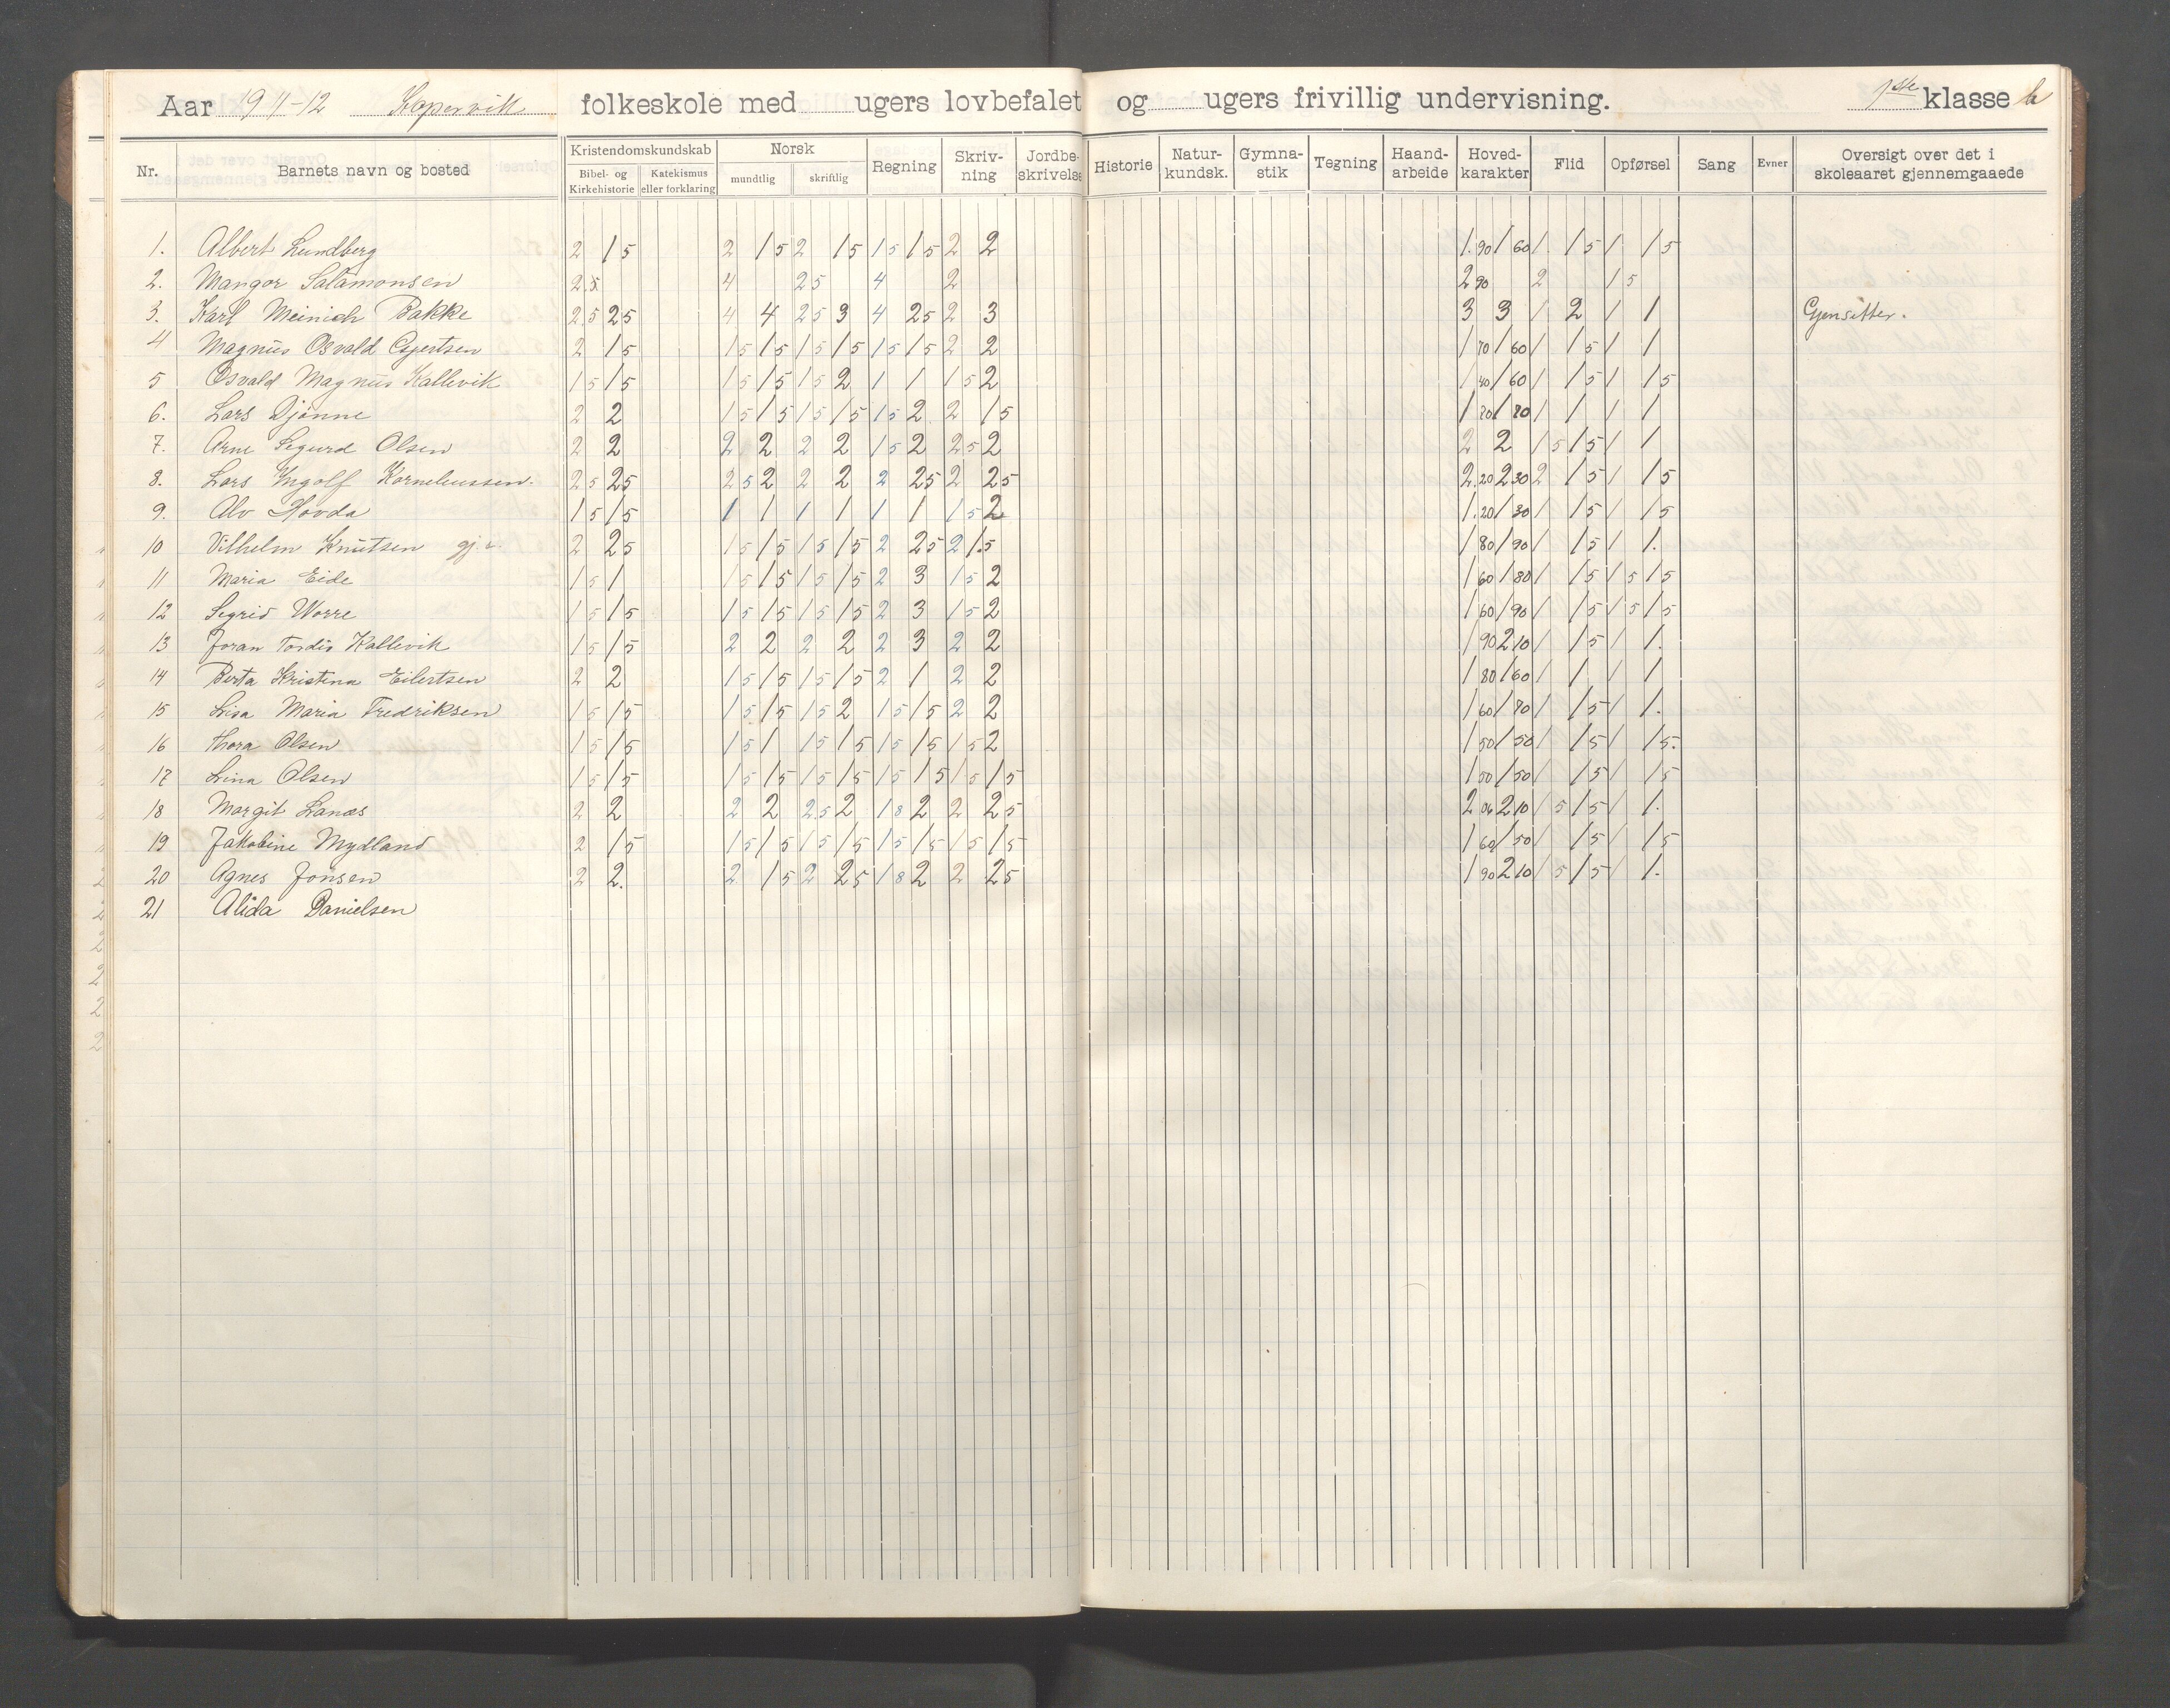 Aar 1911-12 Kopervik folkeskole med ugers lovbefalet og ugers frivillig undervisning. 1ste klasse b
Nr. Barnets navn og bosted Kristendomskundskab Norsk Regning Skriv-ning Jordbe-skrivelse Historie Natur-kundsk. Gymna-stik Tegning Haand-arbeide Hoved-karakter Flid Opførsel Sang Evner Oversigt over det i skoleaaret gjennemgaaede
Bibel- og Kirkehistorie Katekismus eller forklaring mundtlig skriftlig
1. Albert Lundberg 2 15 2 15 2 15 15 15 2 2 1.90 160 1. 15 1 15
2. Mangor Salamonsen 25 4 25 4 2 290 2 15
3. Karl Meinich Bakke 25 25 4 4 25 3 4 25 2 3 3 3 1 2 1 1 Gjensitter.
4 Magnus Osvald Gjertsen 2 15 15 15 15 15 15 15 2 2 170 160 1 15 1 1
5 Osvald Magnus Kallevik 15 15 15 15 15 2 1 1 15 2 140 160 1 15 1 15
6. Lars Djønne 2 2 15 15 15 15 15 2 2 15 170 170 1 1 1 1
7. Arne Sigurd Olsen 2 2 2 2 2 2 15 2 25 2 2 2 15 15 1 1
8. Lars Ingolf Korneliussen. 25 25 25 2 2 2 2 25 2 25 2.20 230 2 15 1 15
9. Alv Hovda 15 15 1 1 1 1 1 1 15 2 1.20 130 1 15 1 15
10 Vilhelm Knutsen 2 25 15 15 15 15 2 25 2 1.5 180 190 1 15 1 1.
11 Maria Eide 15 1 15 15 15 15 2 3 15 2 160 180 1 15 15 15
12 Sigrid Worre 15 15 15 15 15 15 2 3 15 2 160 190 1 15 15 15
13 Joran Tordis Kallevik 15 15 2 2 2 2 2 3 2 2 190 210 1 15 1 1.
14 Berta Kristina Eilertsen 2 2 15 15 15 15 2 1 2 2 180 160 1 1 1 1
15 Lisa Maria Fredriksen 15 15 15 15 15 2 15 15 2 2 160 170 1 15 1 1.
16 Thora Olsen 15 15 15 1 15 15 15 15 15 2 150 150 1 15 1 15.
17 Lina Olsen 15 15 15 15 15 15 15 15 15 15 150 150 1 15 1 15
18 Margit Lanæs 2 2 2 2 2.5 2 18 2 2 25 206 210 15 15 1 1.
19 Jakobine Mydland 2 15 15 15 15 15 15 15 15 15 160 150 1 15 1 15
20 Agnes Jonsen 2 2. 2 15 2 25 18 2 2 25 190 210 15 15 1 1.
21 Alida Danielsen